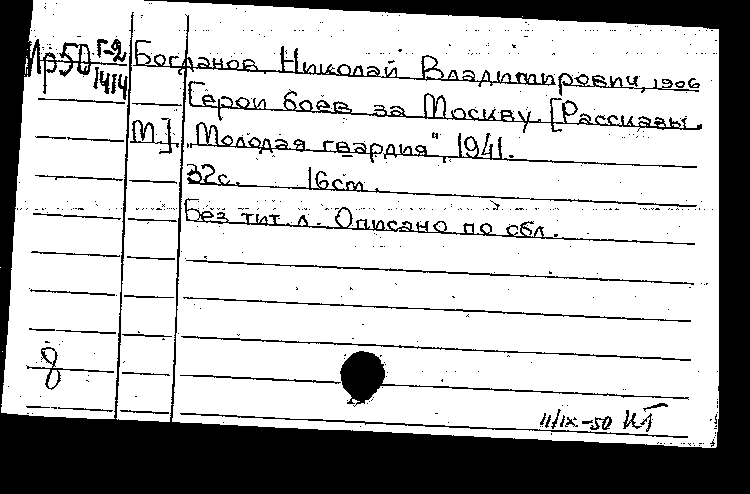 Пр50 Г-2/1414
Богданов Николай Владимирович, 1906
Герои боев за Москву. [Рассказы.
М]. „Молодая гвардия", 1941.
32с. 16см.
Без тит. л. Описано по обл.
8
11/IX-50